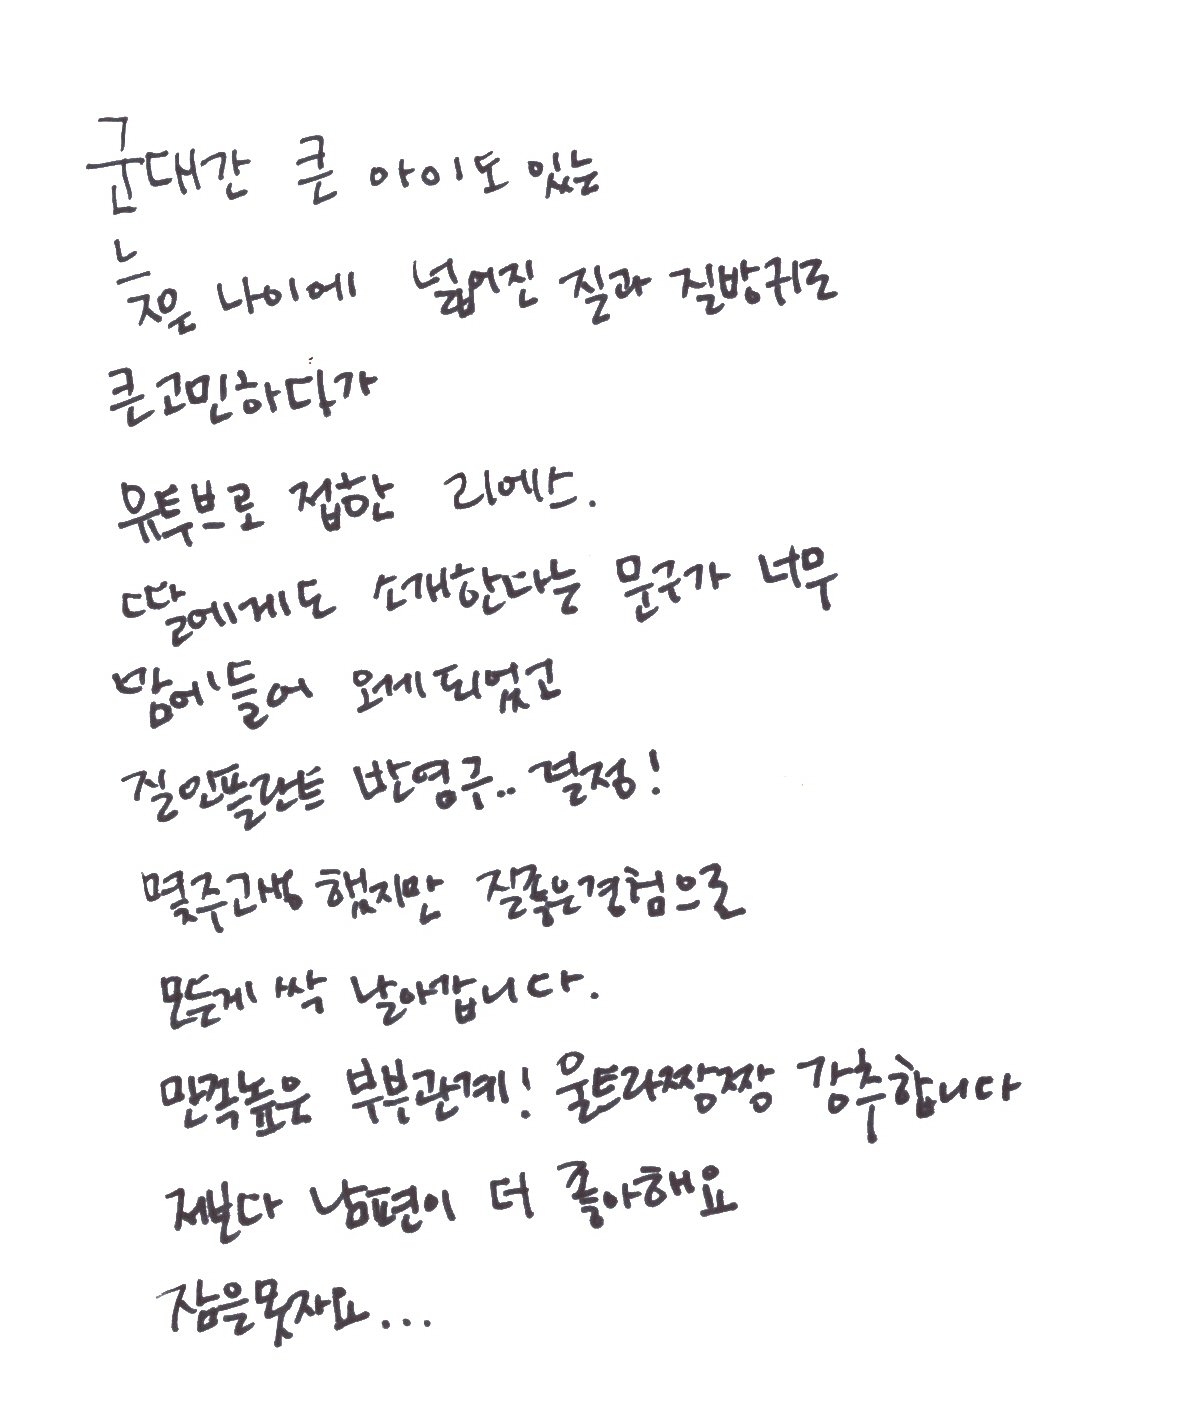 군대간 큰 아이도 있는
늦은 나이에 넓어진 질과 질방귀로
큰고민하다가
유투브로 접한 리에스.
딸에게도 소개한다는 문구가 너무
맘에들어 오게되었고
질임플란트 반영구.. 결정!
몇주고생 했지만 질좋은경험으로
모든게 싹 날아갑니다.
만족높은 부부관계! 울트라짱짱 강추합니다
저보다 남편이 더 좋아해요
잠을못자요...